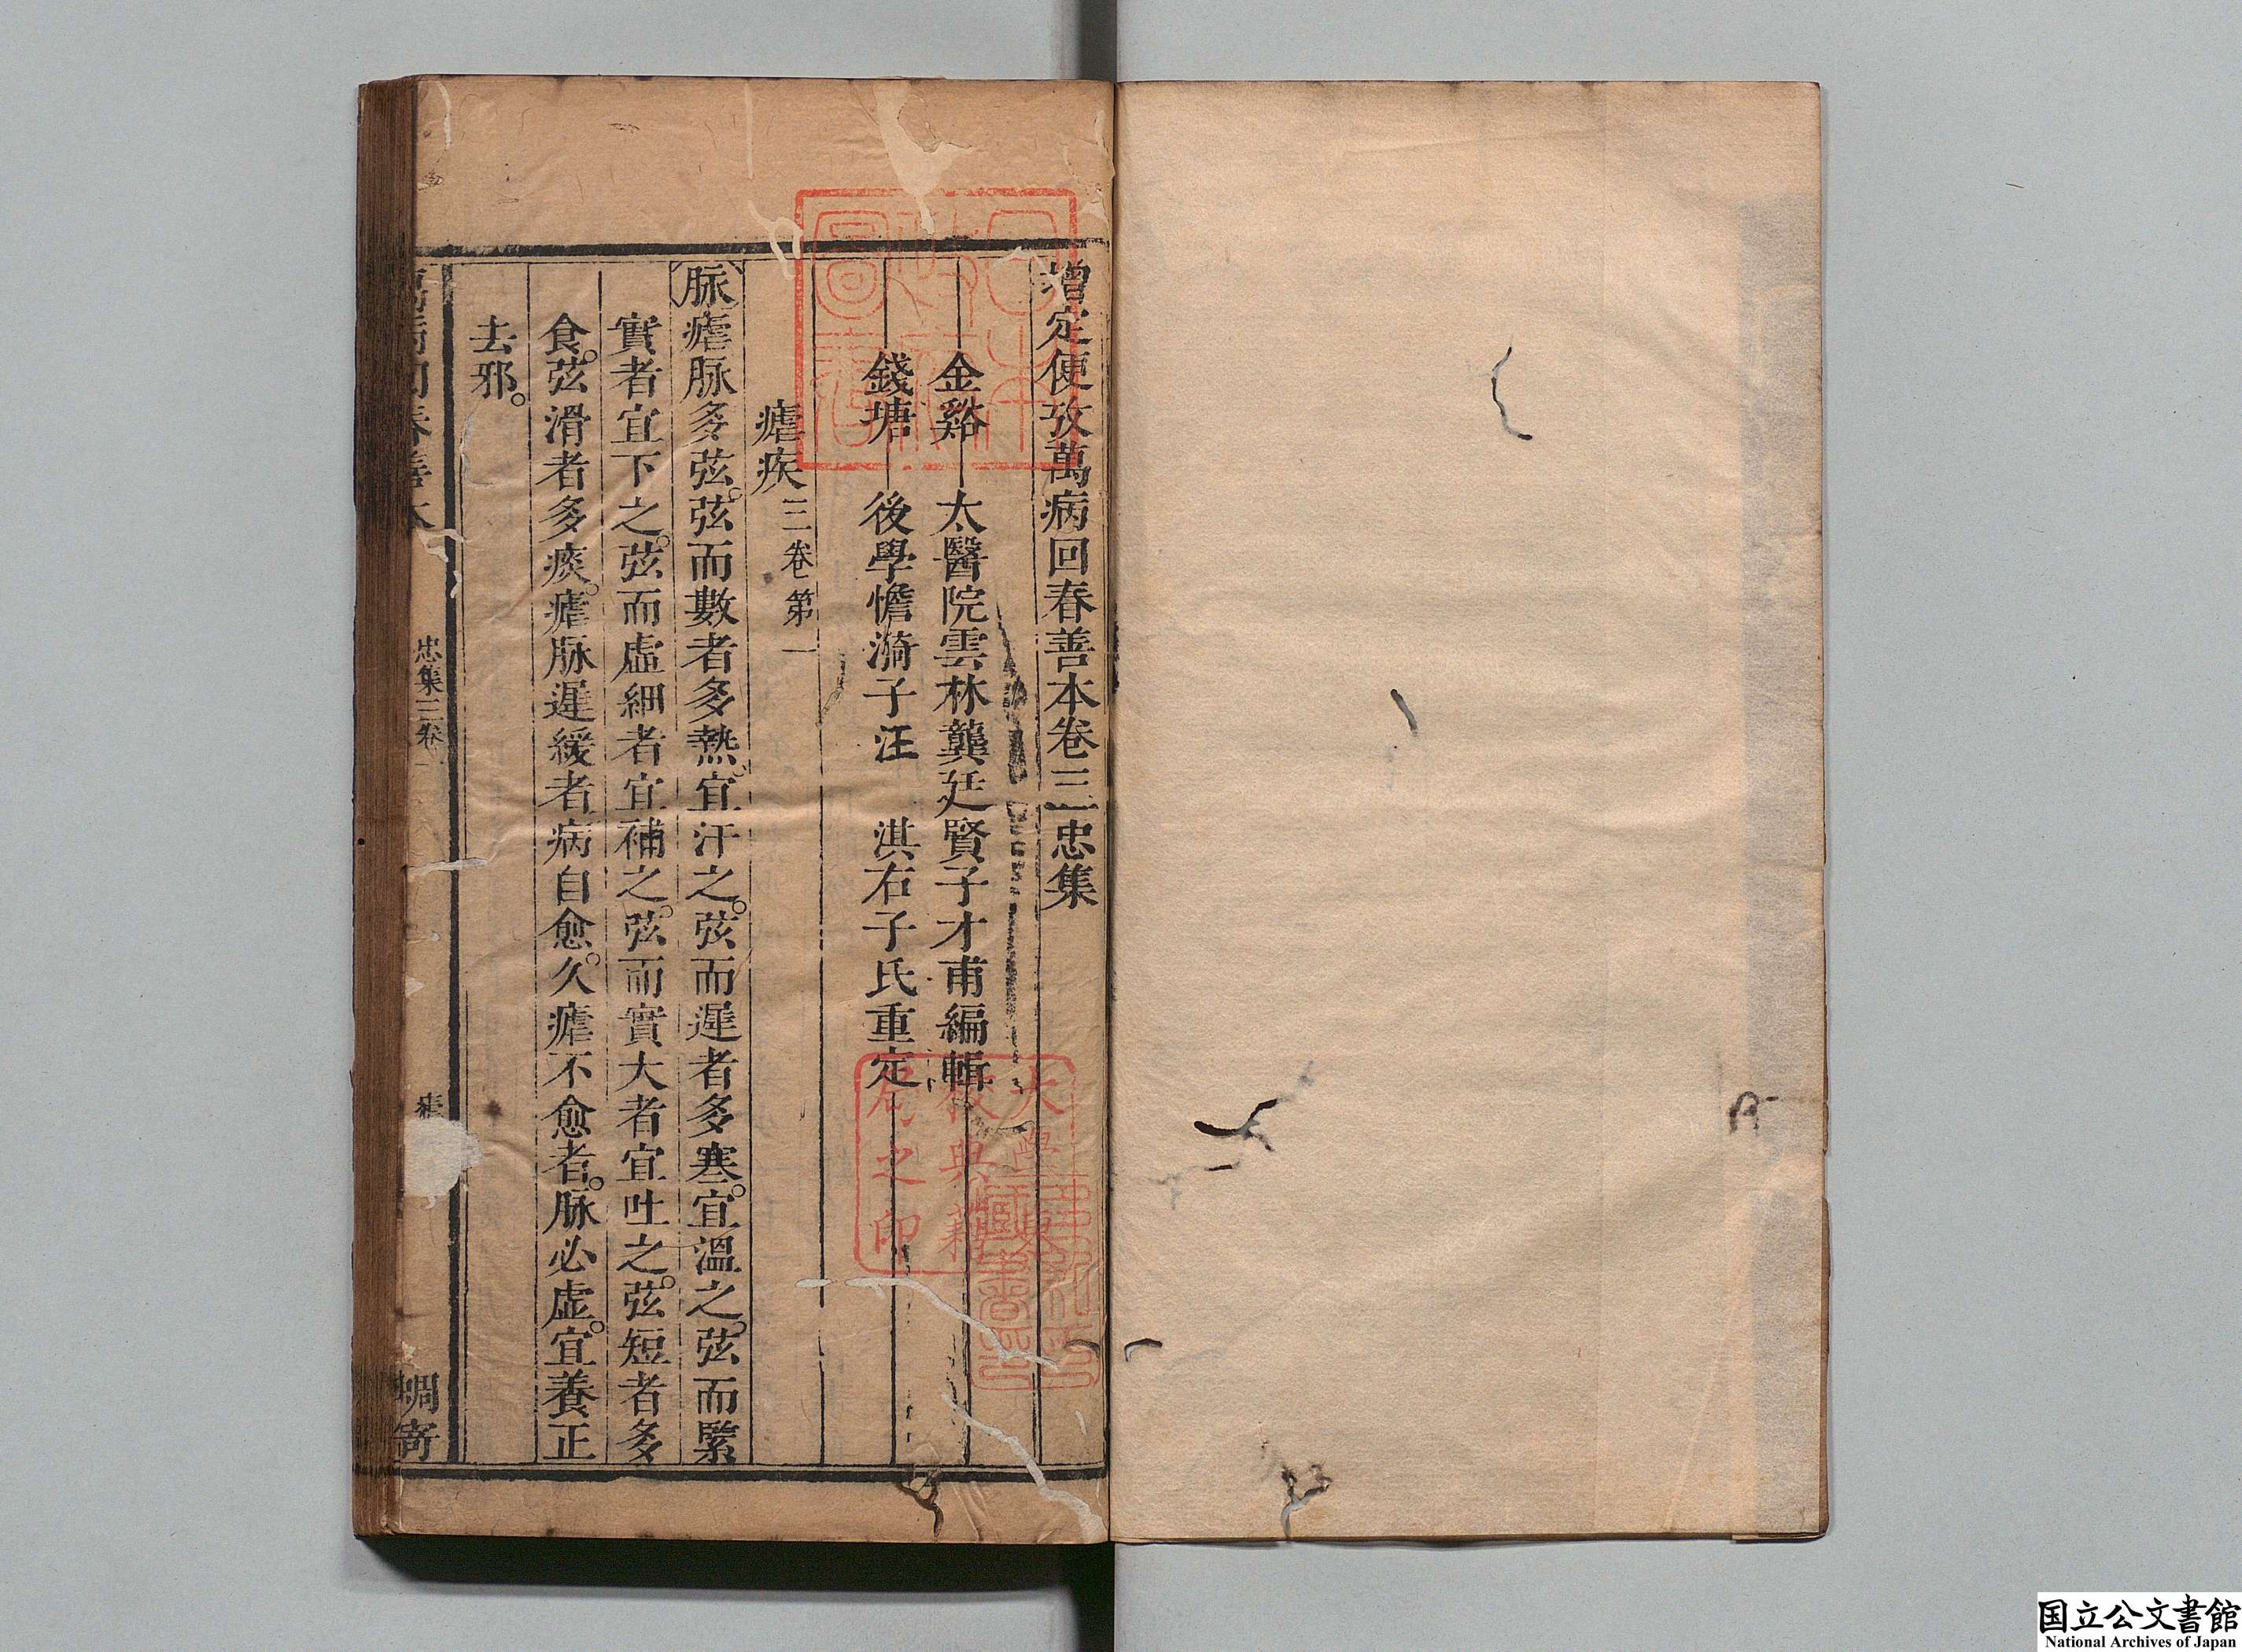 增定便攷萬病回春善本卷三 忠集
金谿 太醫院雲林龔廷賢子才甫編輯
錢塘 後學憺漪子汪 淇右子氏重定
瘧疾三卷第一
脉瘧脉多弦。弦而數者多熱。宜汗之。弦而遲者多寒。宜溫之。弦而緊
實者宜下之。弦而虛細者宜補之。弦而實大者宜吐之。弦短者多
食。弦滑者多痰。瘧脉遲緩者病自愈。久瘧不愈者。脉必虛。宜養正
去邪。
萬病回春善本 忠集三卷 蜩寄
日本政府圖書
大學東校典籍局之印
國立公文書館
National Archives of Japan